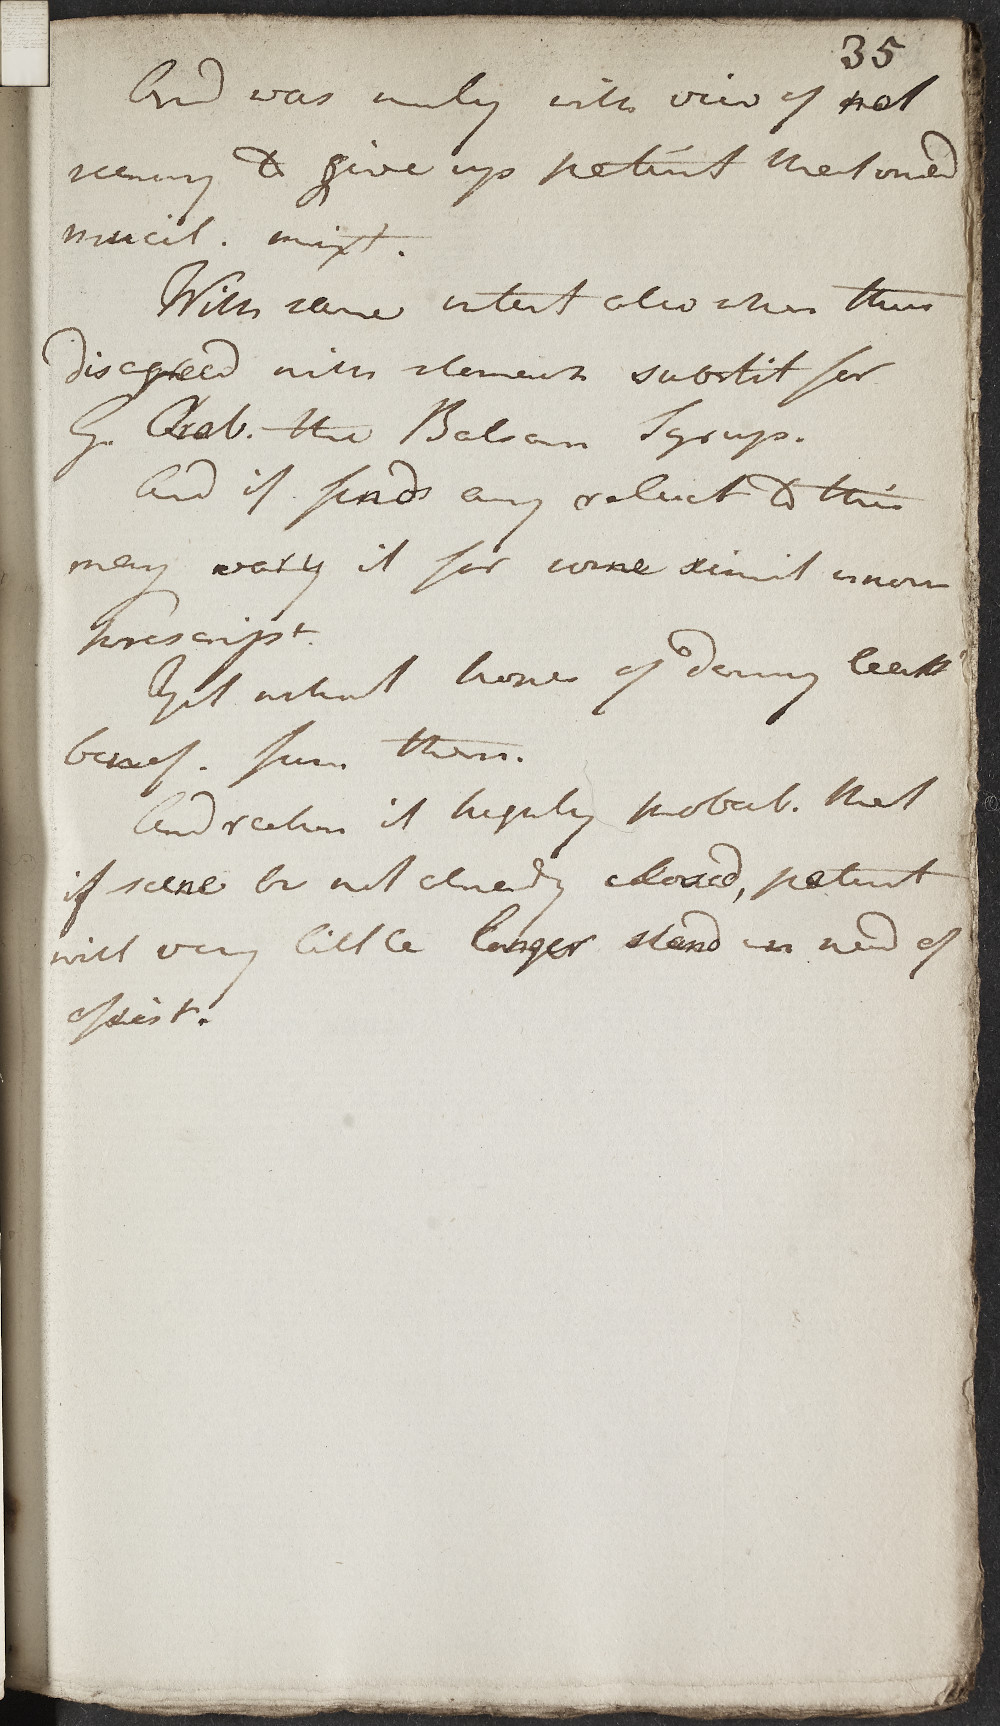 35
And was meerly with view of not
seeming to give up patient that ordered
mucil. mixt.
With same intent also when this
disagreed with stomach substit for
G. Arab. the Balsam Syrup.
And if finds any reluct to this
may vary it for some simil known
prescript.
Yet without hopes of dering least
benef. from them.
And reckon it highly probab. that
if scene be not already closed, patient
will very little longer stand in need of
assist.